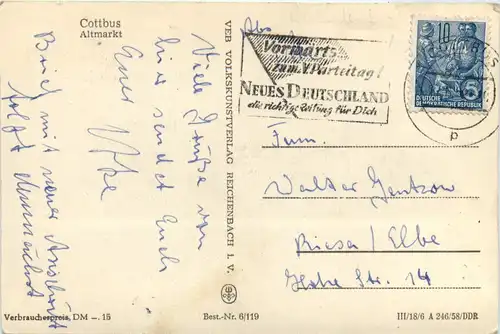 Cottbus
Altmarkt
Abs
Viele Grüße von
hier sendet Euch
Euer
Brief mit neuer Anschrift
folgt
VEB VOLKSKUNSTVERLAG REICHENBACH I. V.
Vorwärts
zum V. Parteitag!
NEUES DEUTSCHLAND
die richtige Zeitung für Dich
COTTBUS
p
DEUTSCHE
DEMOKRATISCHE REPUBLIK
5
Fam.
Walter Gentzow
Riesa/Elbe
Hohe Str. 14
Verbraucherpreis, DM —.15
Best.-Nr. 6/119
III/18/6 A 246/58/DDR